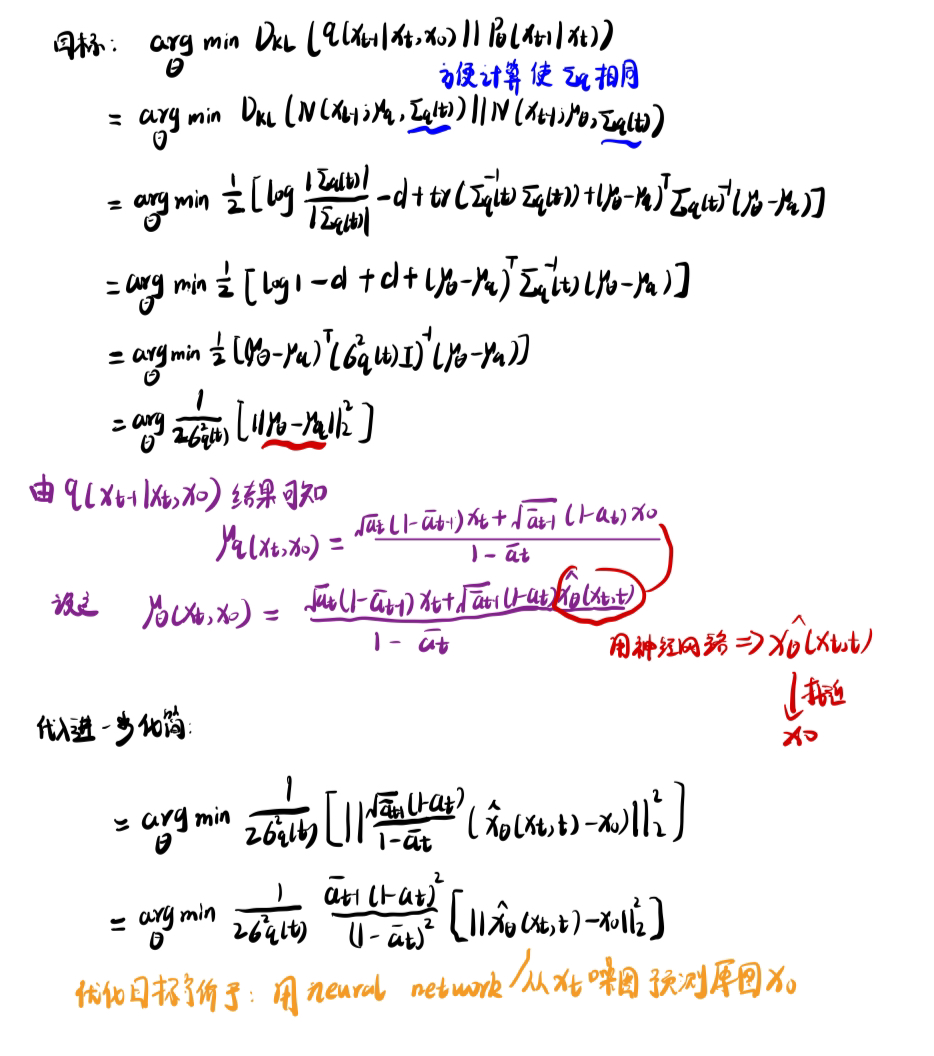 目标: arg min_θ D_KL(q(x_{t-1}|x_t,x_0)||P_θ(x_{t-1}|x_t))
方便计算使Σ_q相同
= arg min_θ D_KL(N(x_{t-1};μ_q,Σ_q(t))||N(x_{t-1};μ_θ,Σ_q(t))
= arg min_θ 1/2 [log |Σ_q(t)|/|Σ_q(t)| -d+tr(Σ_q^{-1}(t)Σ_q(t))+(μ_θ-μ_q)^T Σ_q(t)^{-1}(μ_θ-μ_q)]
= arg min_θ 1/2 [log1-d+d+(μ_θ-μ_q)^T Σ_q^{-1}(t)(μ_θ-μ_q)]
= arg min_θ 1/2 [(μ_θ-μ_q)^T(σ_q^2(t)I)^{-1}(μ_θ-μ_q)]
= arg_θ 1/(2σ_q^2(t)) [||μ_θ-μ_q||_2^2]
由q(x_{t-1}|x_t,x_0)结果可知
μ_q(x_t,x_0) = (√a_t(1-ā_{t-1})x_t+√ā_{t-1}(1-a_t)x_0)/(1-ā_t)
设定 μ_θ(x_t,x_0) = (√a_t(1-ā_{t-1})x_t+√ā_{t-1}(1-a_t)x̂_θ(x_t,t))/(1-ā_t)
用神经网络⇒x̂_θ(x_t,t)
↓接近
x_0
代入进一步化简:
= arg min_θ 1/(2σ_q^2(t)) [||√ā_{t-1}(1-a_t)/(1-ā_t) (x̂_θ(x_t,t)-x_0)||_2^2]
= arg min_θ 1/(2σ_q^2(t)) ā_{t-1}(1-a_t)^2/(1-ā_t)^2 [||x̂_θ(x_t,t)-x_0||_2^2]
优化目标等价于: 用neural network/从x_t噪图预测原图x_0